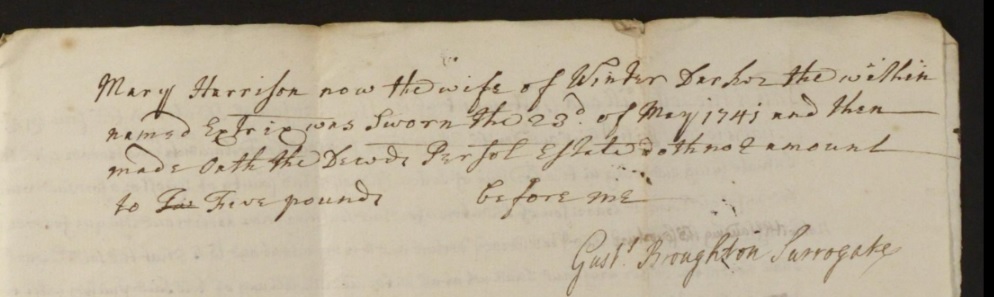 Mary Harrison now the wife of Winter Darker the within
named Extrix was Sworn the 23d. of May 1741 and then
made Oath the Decds Persol Estate doth not amount
to Five pounds before me
Gust. Broughton Surrogate